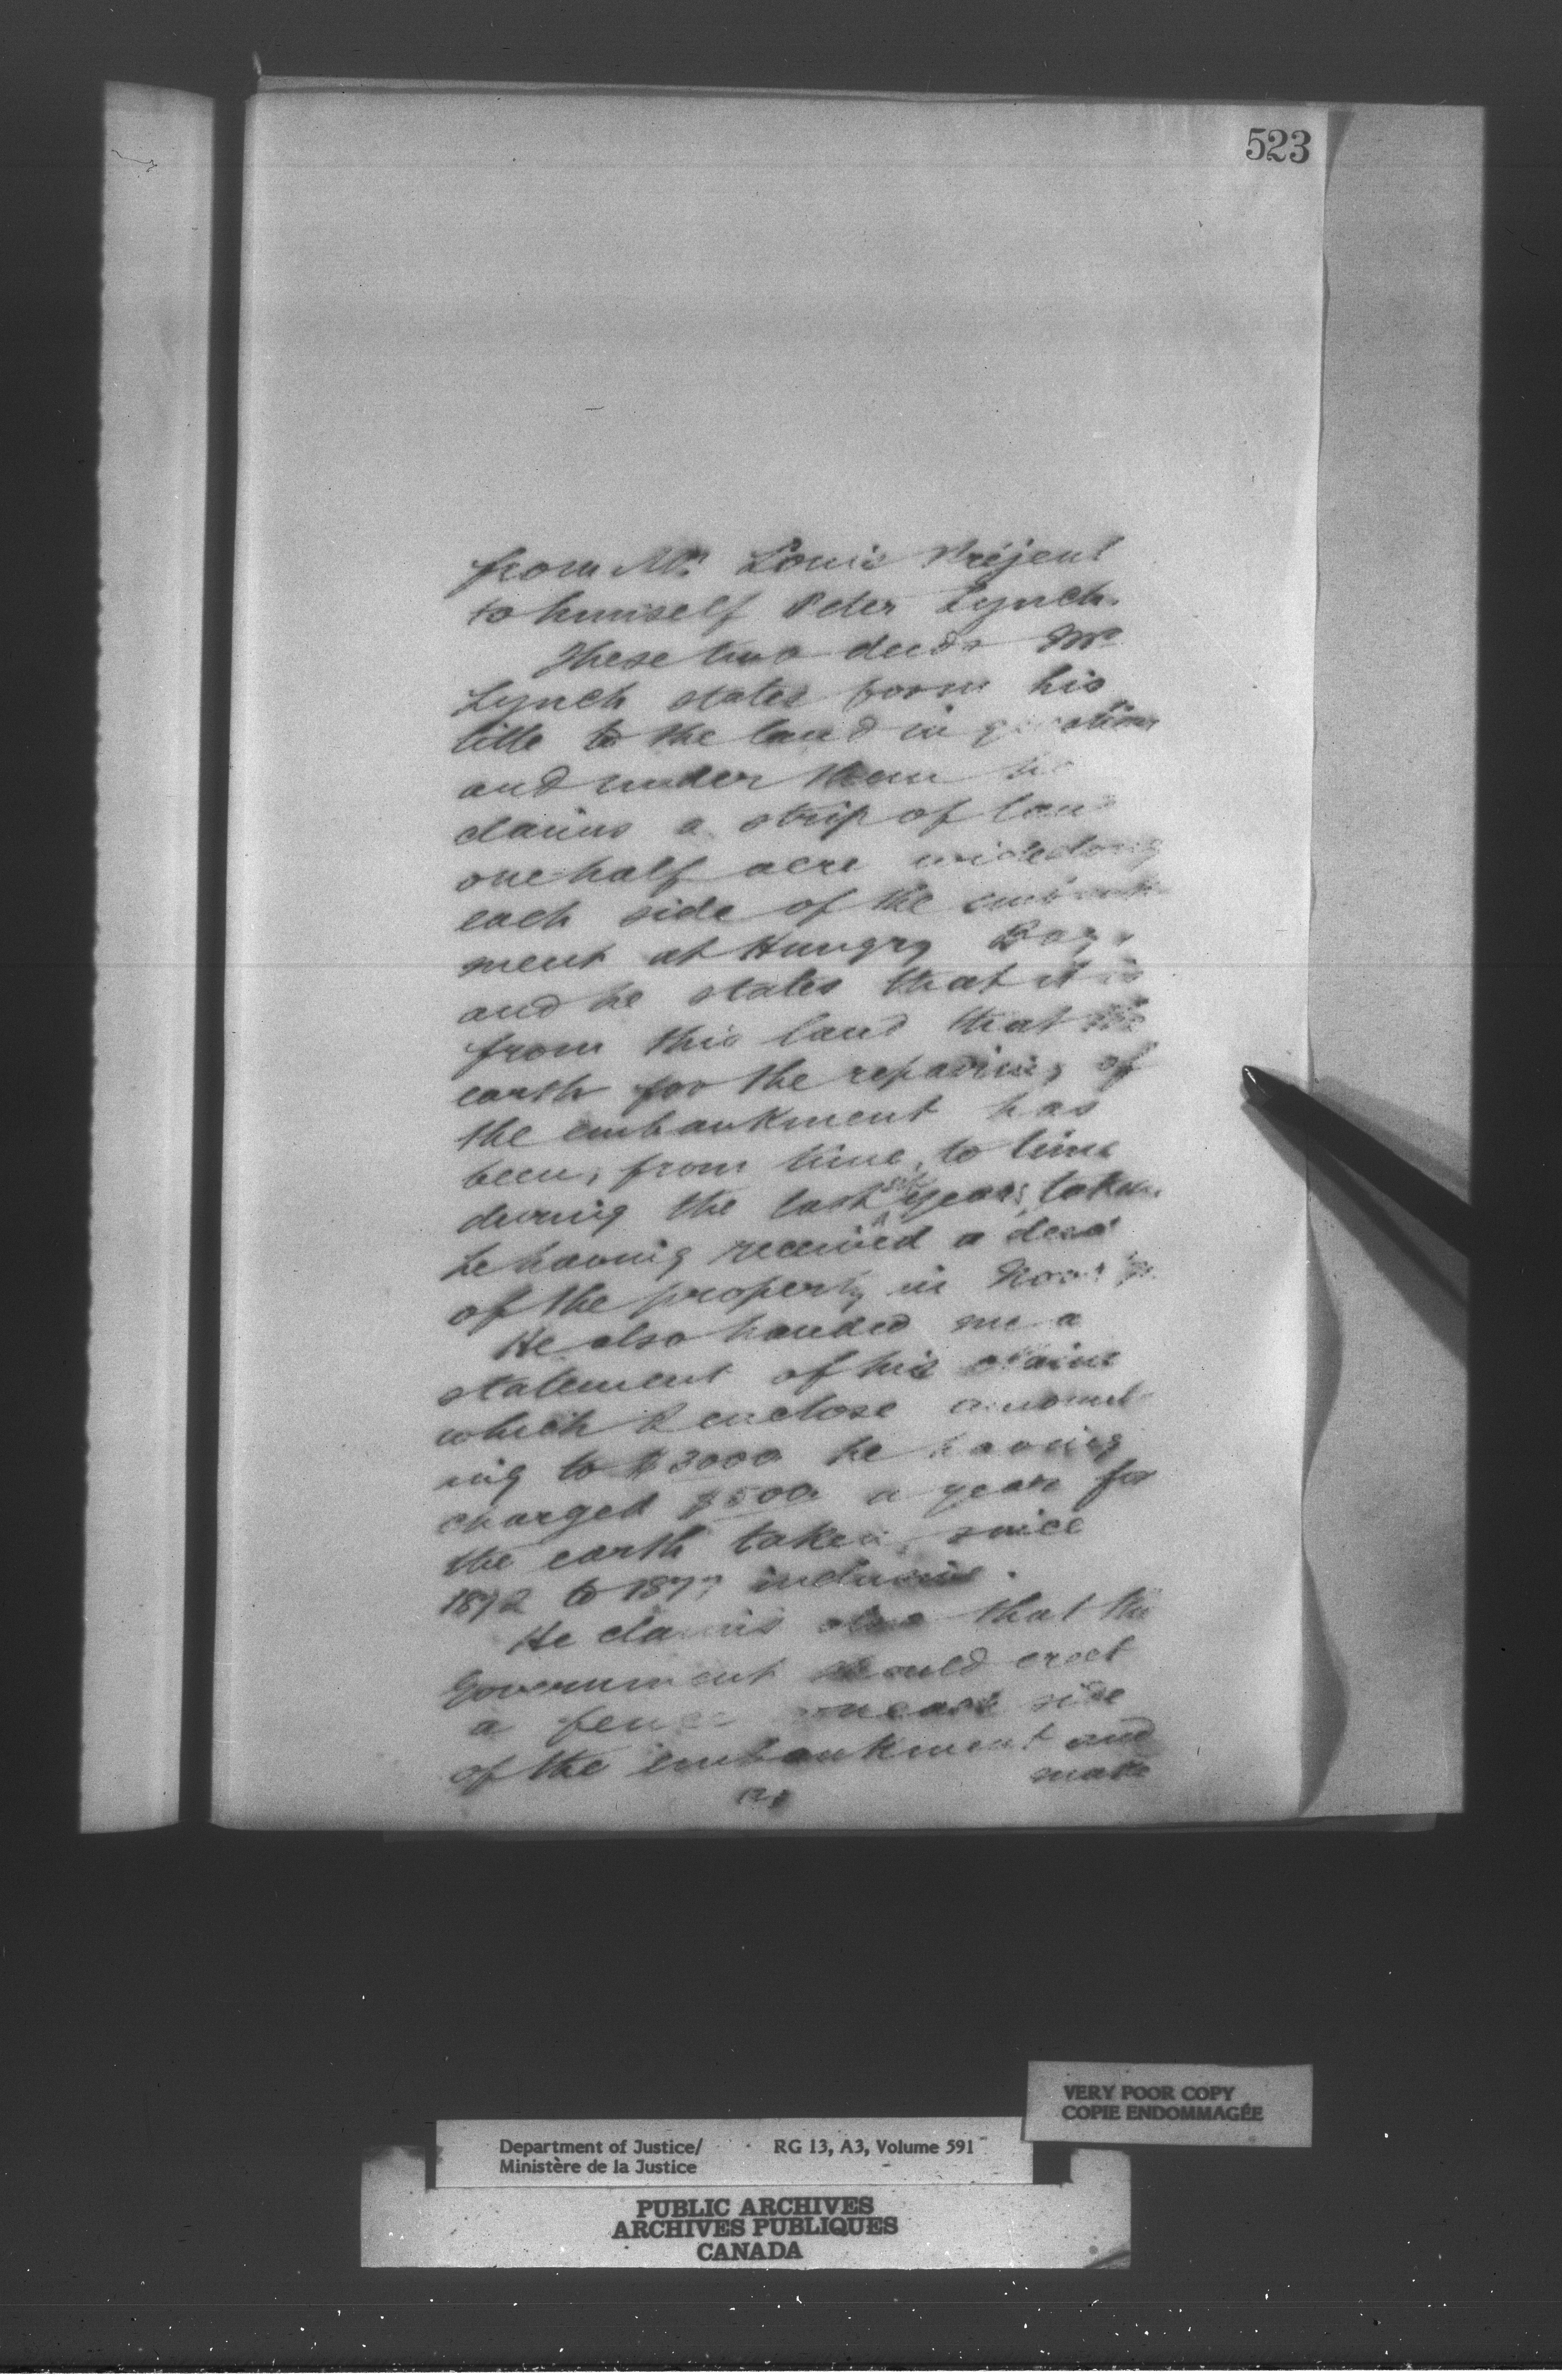 523
from Mr. Louis Préjent
to himself Peter Lynch.
These two deeds Mr
Lynch states form his
title to the land in question
and under them he
claims a strip of land
one half acre wide along
each side of the embank-
ment at Hungry Bay,
and he states that it is
from this land that the
earth for the repairing of
the embankment has
been, from time, to time
during the last six years, taken.
he having received a deed
of the property in
He also handed me a
statement of his claim
which I enclose amount-
ing to $3000 he having
charged $500 a year for
the earth taken, since
1872 to 1877 inclusive.
He claims also that the
Government should erect
a fence on each side
of the embankment and
make
VERY POOR COPY
COPIE ENDOMMAGÉE
Department of Justice/ RG 13, A3, Volume 591
Ministère de la Justice
PUBLIC ARCHIVES
ARCHIVES PUBLIQUES
CANADA